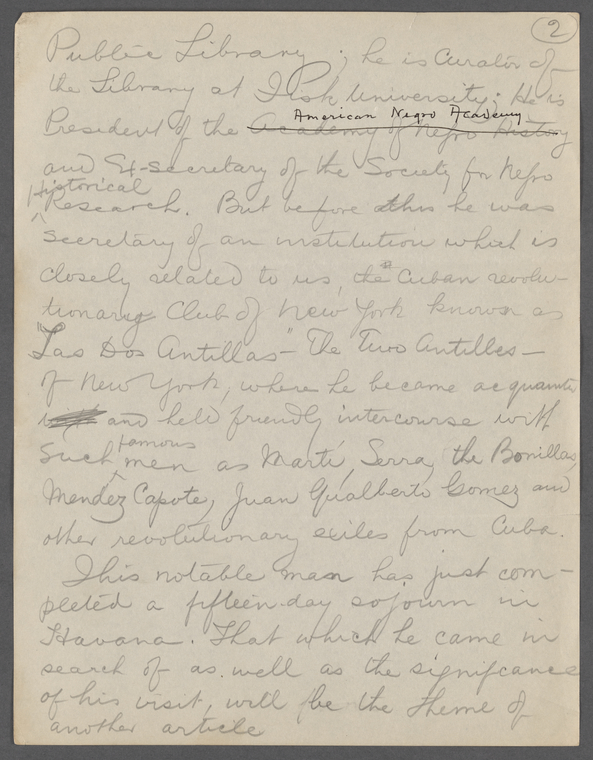 2
Public Library; he is Curator of
the Library at Fisk University; He is
American Negro Academy
President of the Academy of Negro History
and Ex-secretary of the Society for Negro
Historical
Research. But before this he was
secretary of an institution which is
closely related to us, the Cuban revolu-
tionary Club of New York known as
"Las Dos Antillas" - The Two Antilles -
of New York, where he became acquainted
and held friendly intercourse with
famous
such men as Martí, Serra, the Bonillas,
Mendez Capote, Juan Gualberto Gomez and
other revolutionary exiles from Cuba.
This notable man has just com-
pleted a fifteen-day sojourn in
Havana. That which he came in
search of as well as the significance
of his visit, will be the theme of
another article